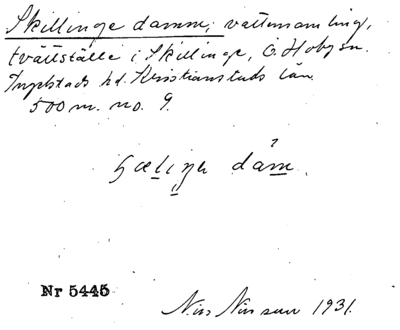 Skillinge damm; vattensamling,
tvättställe i Skillinge, Ö. Hoby sn.
Ingelstads hd. Kristianstads län.
500 m. no. 9.
dám
Nr 5445
Nils Nilsson 1931.